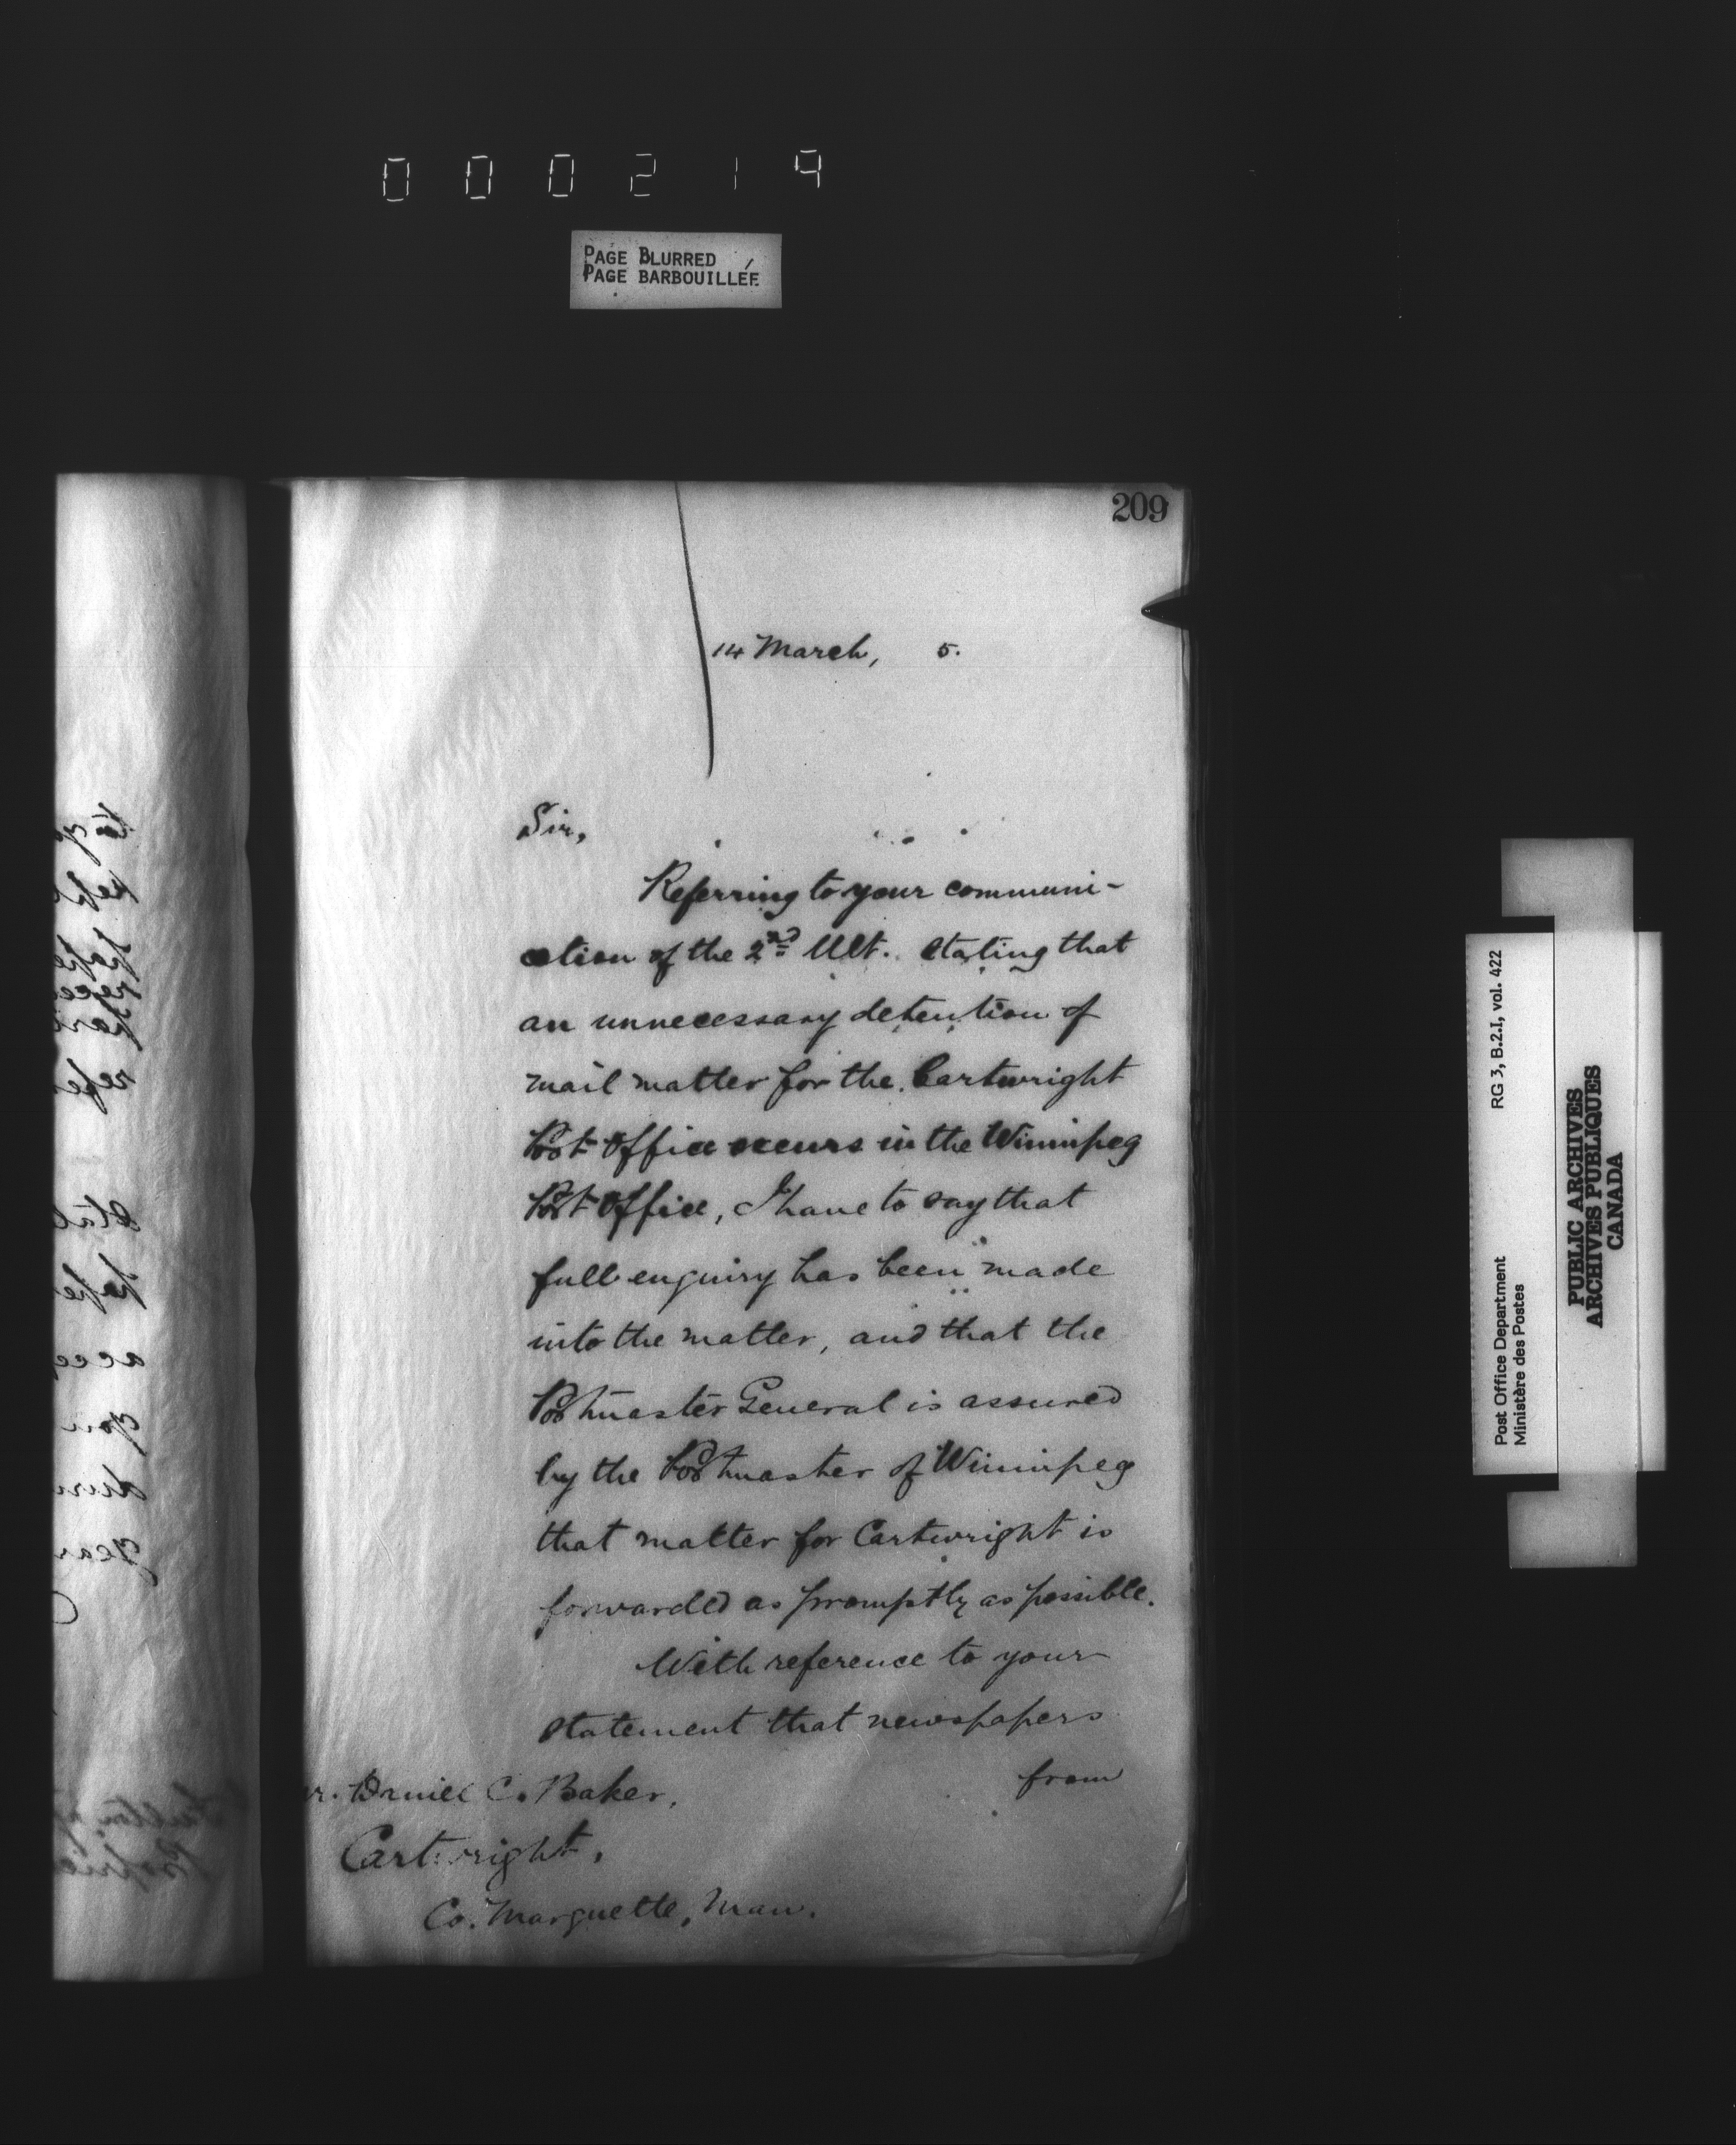 000219
PAGE BLURRED
PAGE BARBOUILLÉE
209
14 March, 5.
Sir,
Referring to your communi-
cation of the 2nd Ult. stating that
an unnecessary detention of
mail matter for the Cartwright
Post Office occurs in the Winnipeg
Post Office, I have to say that
full enquiry has been made
into the matter, and that the
Postmaster General is assured
by the Postmaster of Winnipeg
that matter for Cartwright is
forwarded as promptly as possible.
With reference to your
statement that newspapers
from
r. Daniel C. Baker,
Cartwright,
Co. Marquette, Man.
RG 3, B.2.I, vol. 422
Post Office Department
Ministère des Postes
PUBLIC ARCHIVES
ARCHIVES PUBLIQUES
CANADA